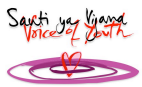 Sauti ya Vijana
Voice of Youth